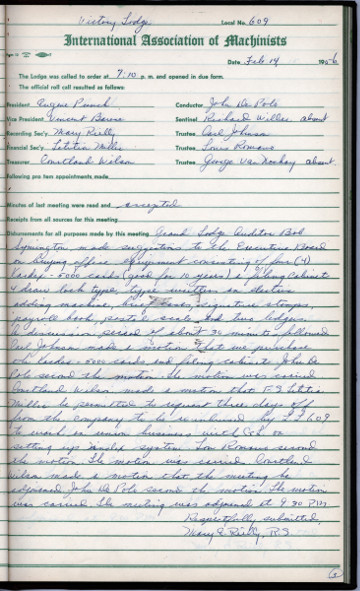 Victory Lodge Local No. 609
International Association of Machinists
Date Feb. 14 1956
The Lodge was called to order at 7:10 p. m. and opened in due form.
The official roll call resulted as follows:
President Eugene Conductor John De Pole
Vice President Vincent Sentinel Richard Willse absent
Recording Sec'y Mary Reilly Trustee Carl Johnson
Financial Sec'y Letitia Millis Trustee Louis Romano
Treasurer Courtland Wilson Trustee George absent
Following pro tem appointments made
Minutes of last meeting were read and accepted
Receipts from all sources for this meeting
Disbursements for all purposes made by this meeting Grand Lodge Auditor Bob
Symington made suggestions to the Executive Board
on buying office equipment consisting of four (4)
- 5000 cards (good for 10 years) a filing cabinet
4 draw lock type, type writer an electric
adding machine, signature stamps,
payroll book, postal scale and two ledgers.
A discussion period of about 30 minutes followed
Carl Johnson made a motion that we purchase
- 5000 cards and filing cabinet John De
Pole second the motion. The motion was carried
Courtland Wilson made a motion that F.S. Letitia
Millis be permitted to request three days off
from the company to be reimbursed by L.L. 609
to work on union business with G.L. on
setting up system. Lou Romano second
the motion. The motion was carried. Courtland
Wilson made a motion that the meeting be
adjourned John De Pole second the motion. The motion
was carried. The meeting was adjourned at 9:30 P.M.
Respectfully submitted,
Mary E. Reilly, R.S.